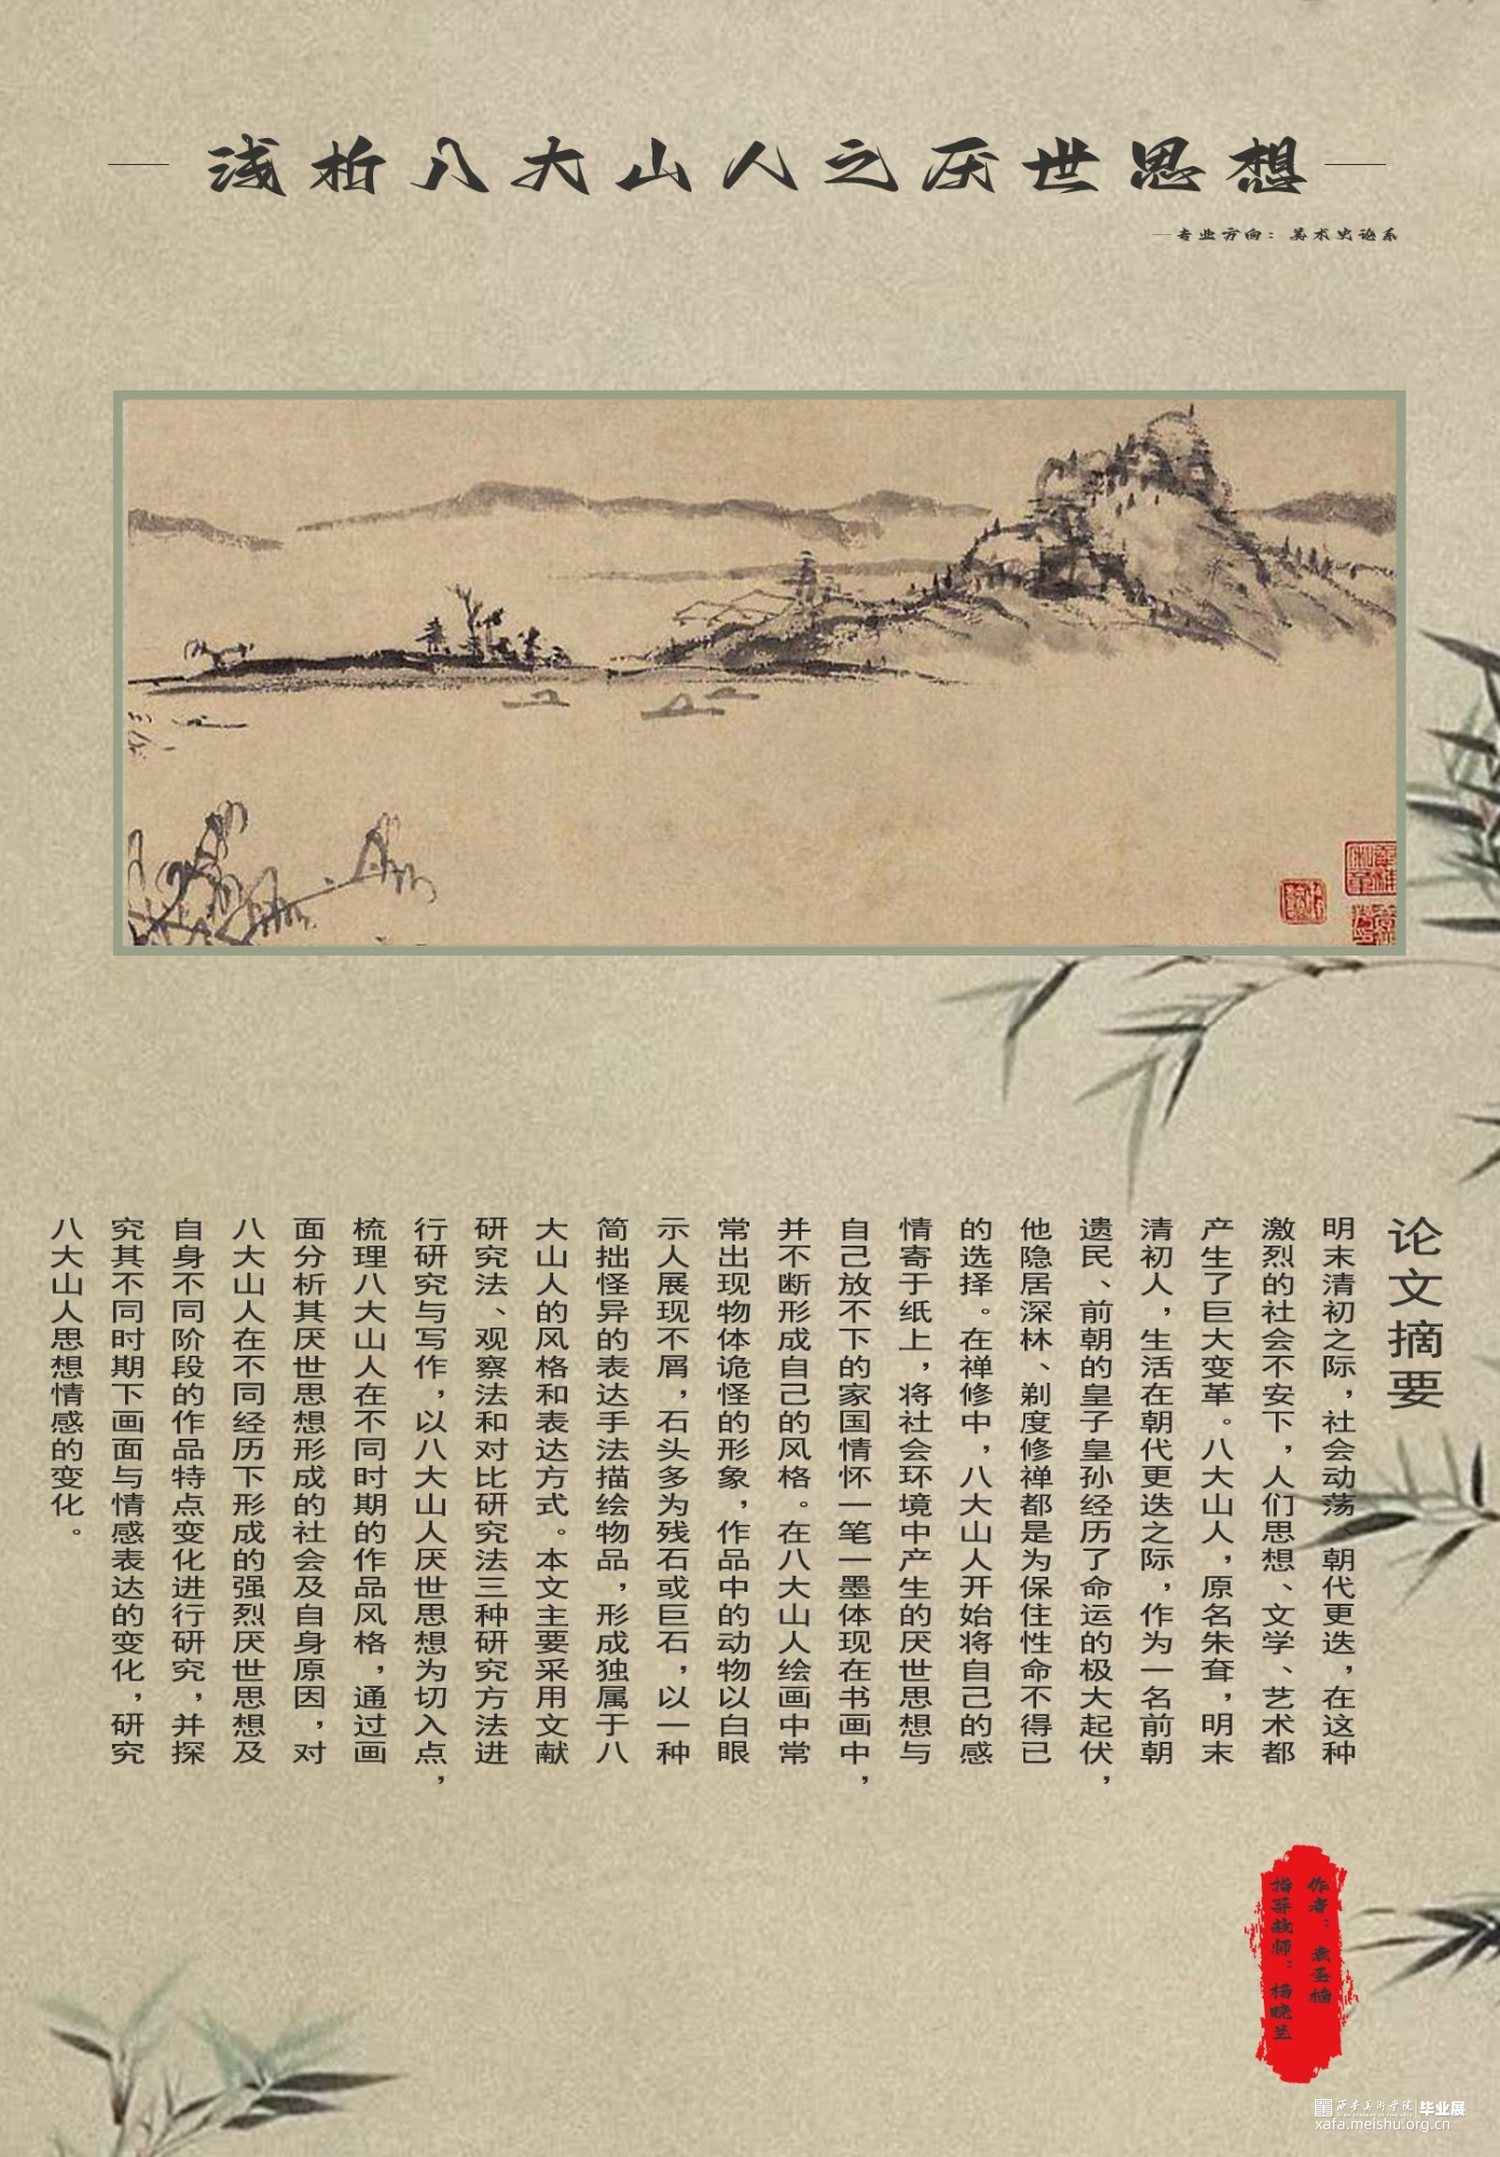 浅析八大山人之厌世思想
专业方向：美术史论系
论文摘要
明末清初之际，社会动荡 朝代更迭，在这种
激烈的社会不安下，人们思想、文学、艺术都
产生了巨大变革。八大山人，原名朱耷，明末
清初人，生活在朝代更迭之际，作为一名前朝
遗民、前朝的皇子皇孙经历了命运的极大起伏，
他隐居深林、剃度修禅都是为保住性命不得已
的选择。在禅修中，八大山人开始将自己的感
情寄于纸上，将社会环境中产生的厌世思想与
自己放不下的家国情怀一笔一墨体现在书画中，
并不断形成自己的风格。在八大山人绘画中常
常出现物体诡怪的形象，作品中的动物以白眼
示人展现不屑，石头多为残石或巨石，以一种
简拙怪异的表达手法描绘物品，形成独属于八
大山人的风格和表达方式。本文主要采用文献
研究法、观察法和对比研究法三种研究方法进
行研究与写作，以八大山人厌世思想为切入点，
梳理八大山人在不同时期的作品风格，通过画
面分析其厌世思想形成的社会及自身原因，对
八大山人在不同经历下形成的强烈厌世思想及
自身不同阶段的作品特点变化进行研究，并探
究其不同时期下画面与情感表达的变化，研究
八大山人思想情感的变化。
作者：袁圣楠
指导教师：杨晓兰
西安美术学院 毕业展
xafa.meishu.org.cn